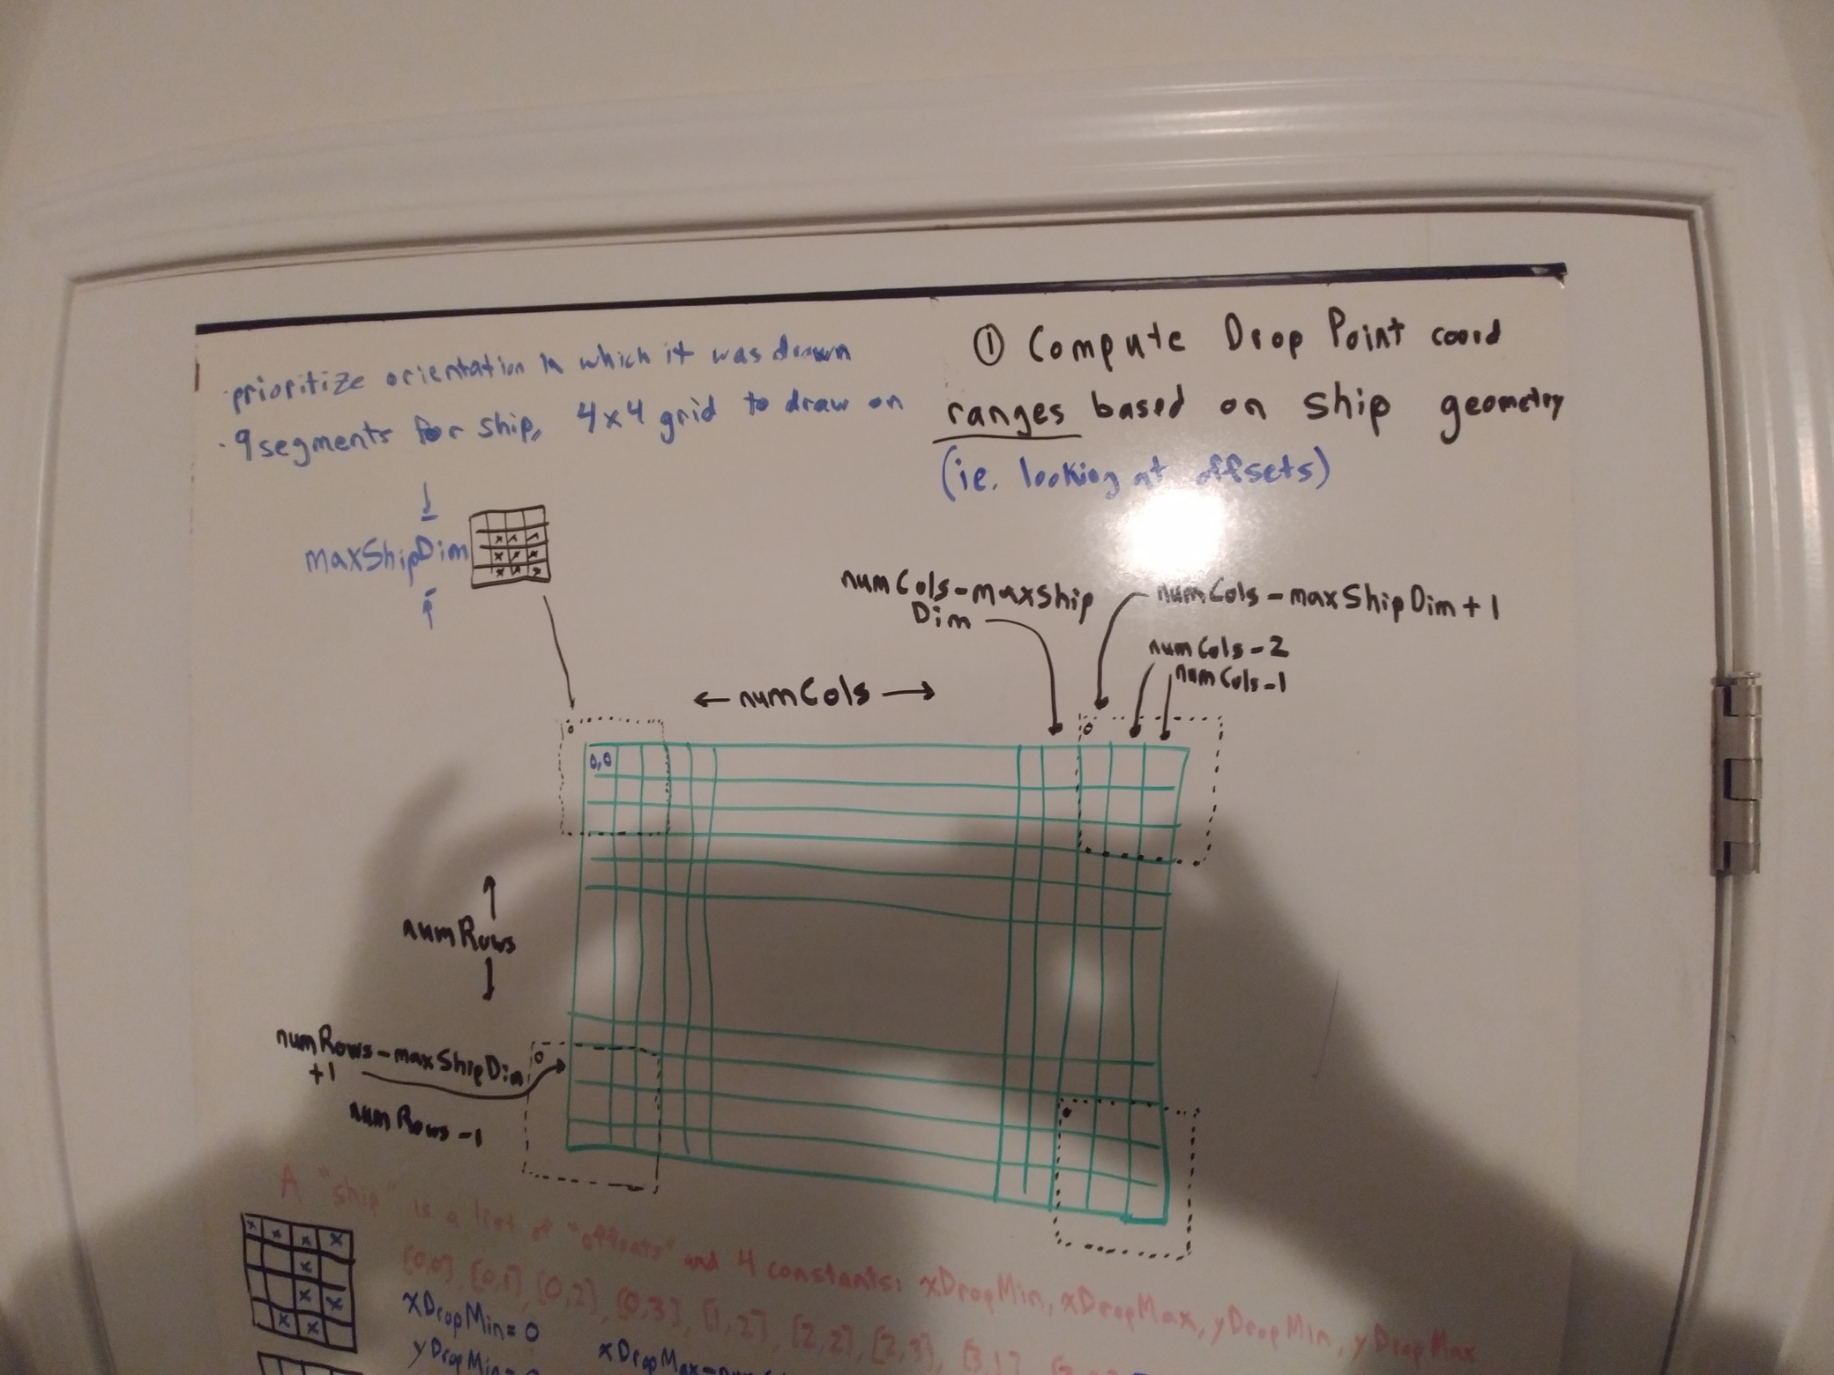 · prioritize orientation in which it was drawn
· 9 segments for ship, 4x4 grid to draw on
① Compute Drop Point coord
ranges based on ship geometry
(ie. looking at offsets)
maxShipDim
numCols-maxShip
Dim
numCols-maxShipDim+1
numCols-2
numCols-1
← numCols →
0,0
numRows
numRows-maxShipDim
+1
numRows-1
A "ship" is a list of "offsets" and 4 constants: xDropMin, xDropMax, yDropMin, yDropMax
[0,0], [0,1], [0,2], [0,3], [1,2], [2,2], [2,3], [3,1]
xDropMin=0
yDropMin=
xDropMax=